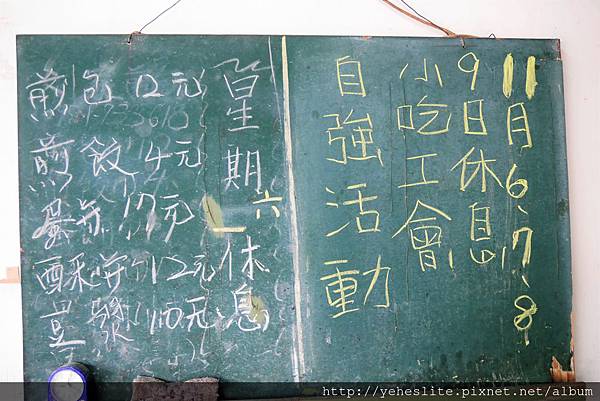 11月6、7、8、
9日休息、
小吃工會
自強活動
星期六休息
煎包 12元
煎餃 4元
蛋餅 17元
酥餅 12元
10元
http://yeheslite.pixnet.net/album